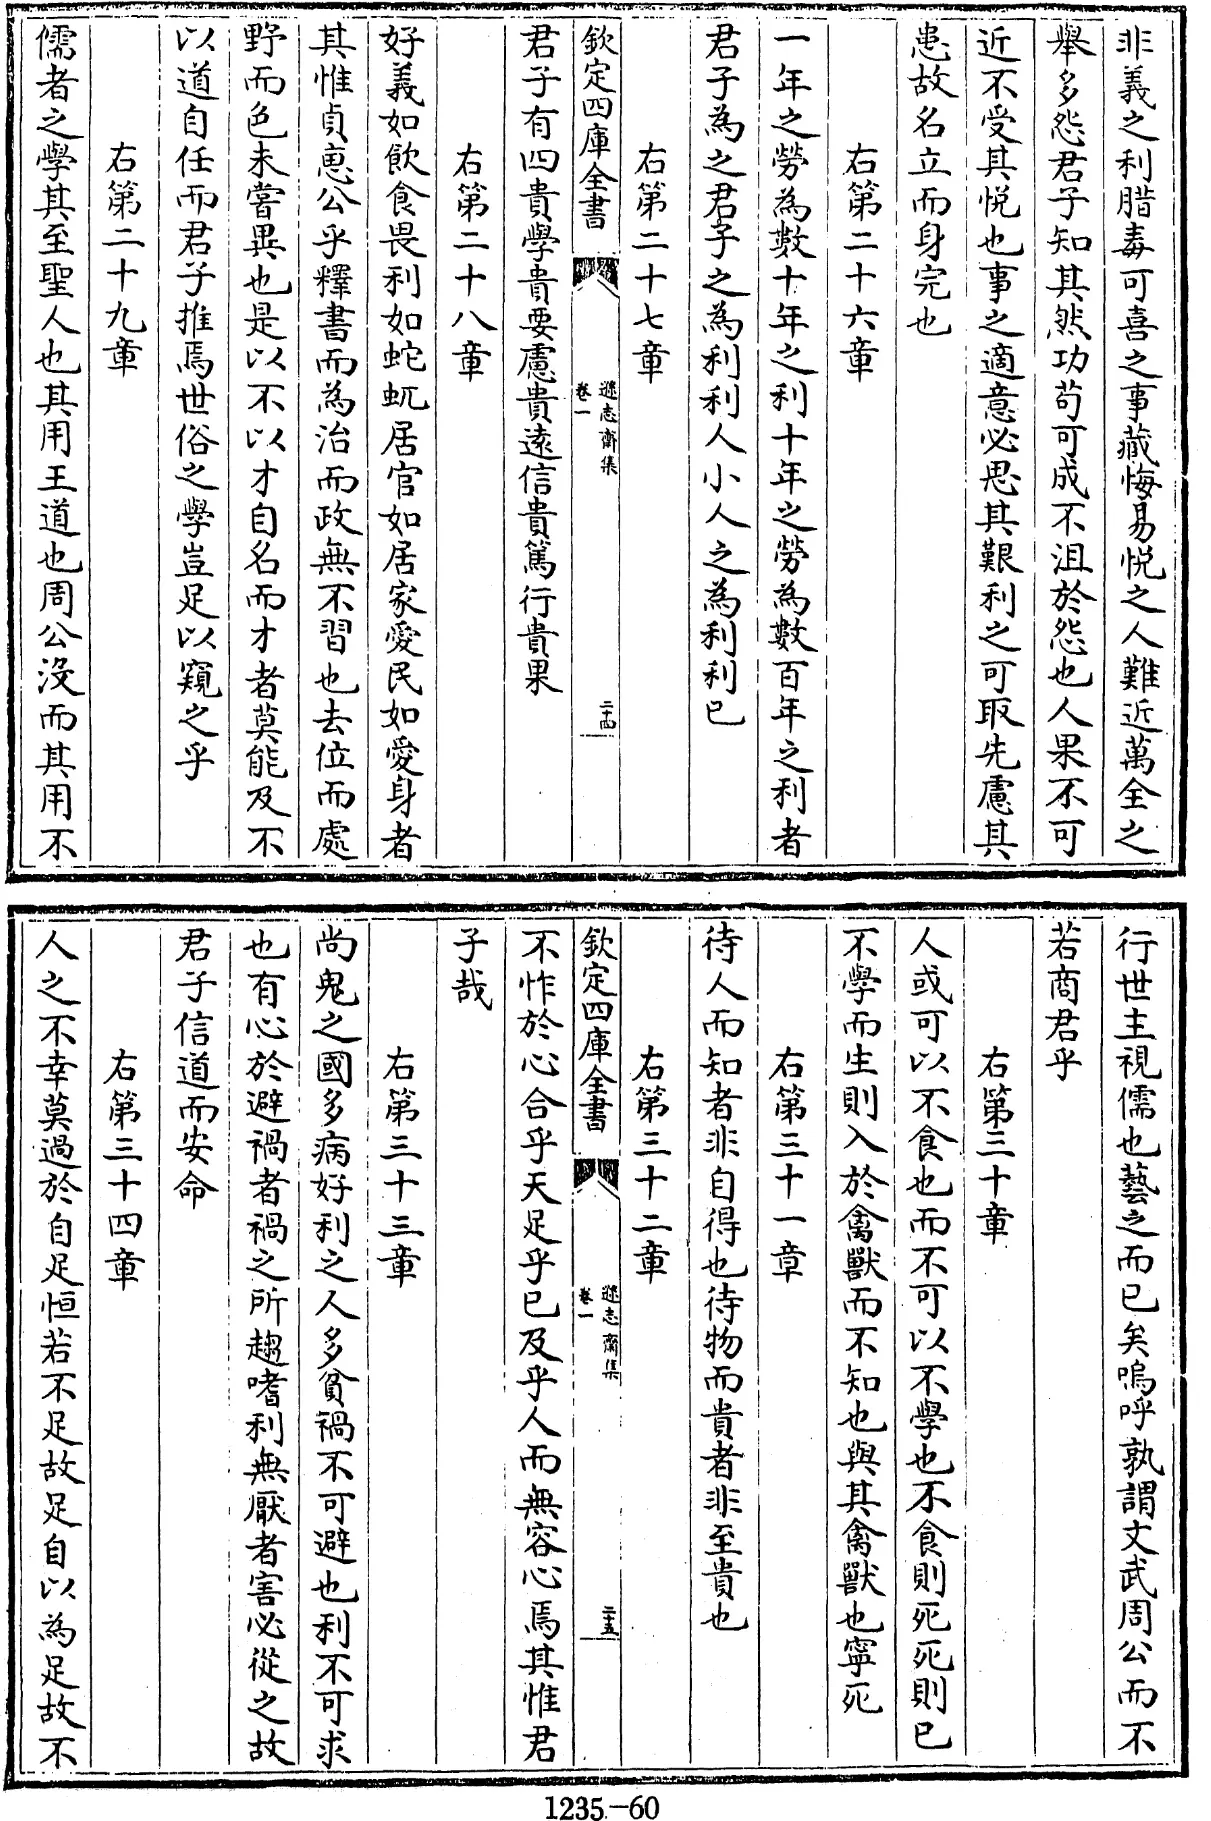 非義之利腊毒可喜之事藏悔易悦之人難近萬全之
舉多怨君子知其然功苟可成不沮於怨也人果不可
近不受其悦也事之適意必思其艱利之可取先慮其
患故名立而身完也
右第二十六章
一年之勞為數十年之利十年之勞為數百年之利者
君子為之君子之為利利人小人之為利利已
右第二十七章
欽定四庫全書
遜志齋集
卷一
二十四
君子有四貴學貴要慮貴遠信貴篤行貴果
右第二十八章
好義如飲食畏利如蛇虺居官如居家愛民如愛身者
其惟貞惠公乎釋書而為治而政無不習也去位而處
野而色未嘗異也是以不以才自名而才者莫能及不
以道自任而君子推焉世俗之學豈足以窺之乎
右第二十九章
儒者之學其至聖人也其用王道也周公没而其用不
行世主視儒也藝之而已矣嗚呼孰謂文武周公而不
若商君乎
右第三十章
人或可以不食也而不可以不學也不食則死死則已
不學而生則入於禽獸而不知也與其禽獸也寧死
右第三十一章
待人而知者非自得也待物而貴者非至貴也
右第三十二章
欽定四庫全書
遜志齋集
卷一
二十五
不怍於心合乎天足乎已及乎人而無容心焉其惟君
子哉
右第三十三章
尚鬼之國多病好利之人多貧禍不可避也利不可求
也有心於避禍者禍之所趨嗜利無厭者害必從之故
君子信道而安命
右第三十四章
人之不幸莫過於自足恒若不足故足自以為足故不
1235-60